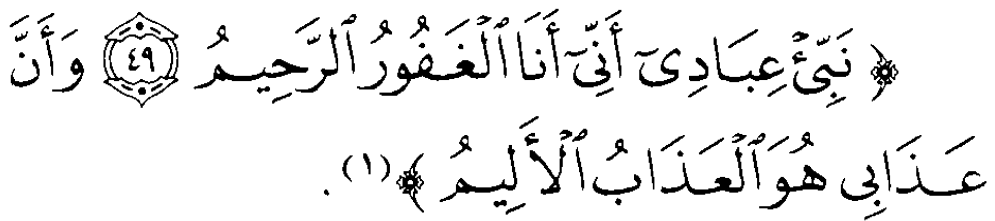 ﴿ نَبِّئْ عِبَادِىٓ أَنِّىٓ أَنَا ٱلْغَفُورُ ٱلرَّحِيمُ ۝٤٩ وَأَنَّ
عَذَابِى هُوَ ٱلْعَذَابُ ٱلْأَلِيمُ ﴾(١).